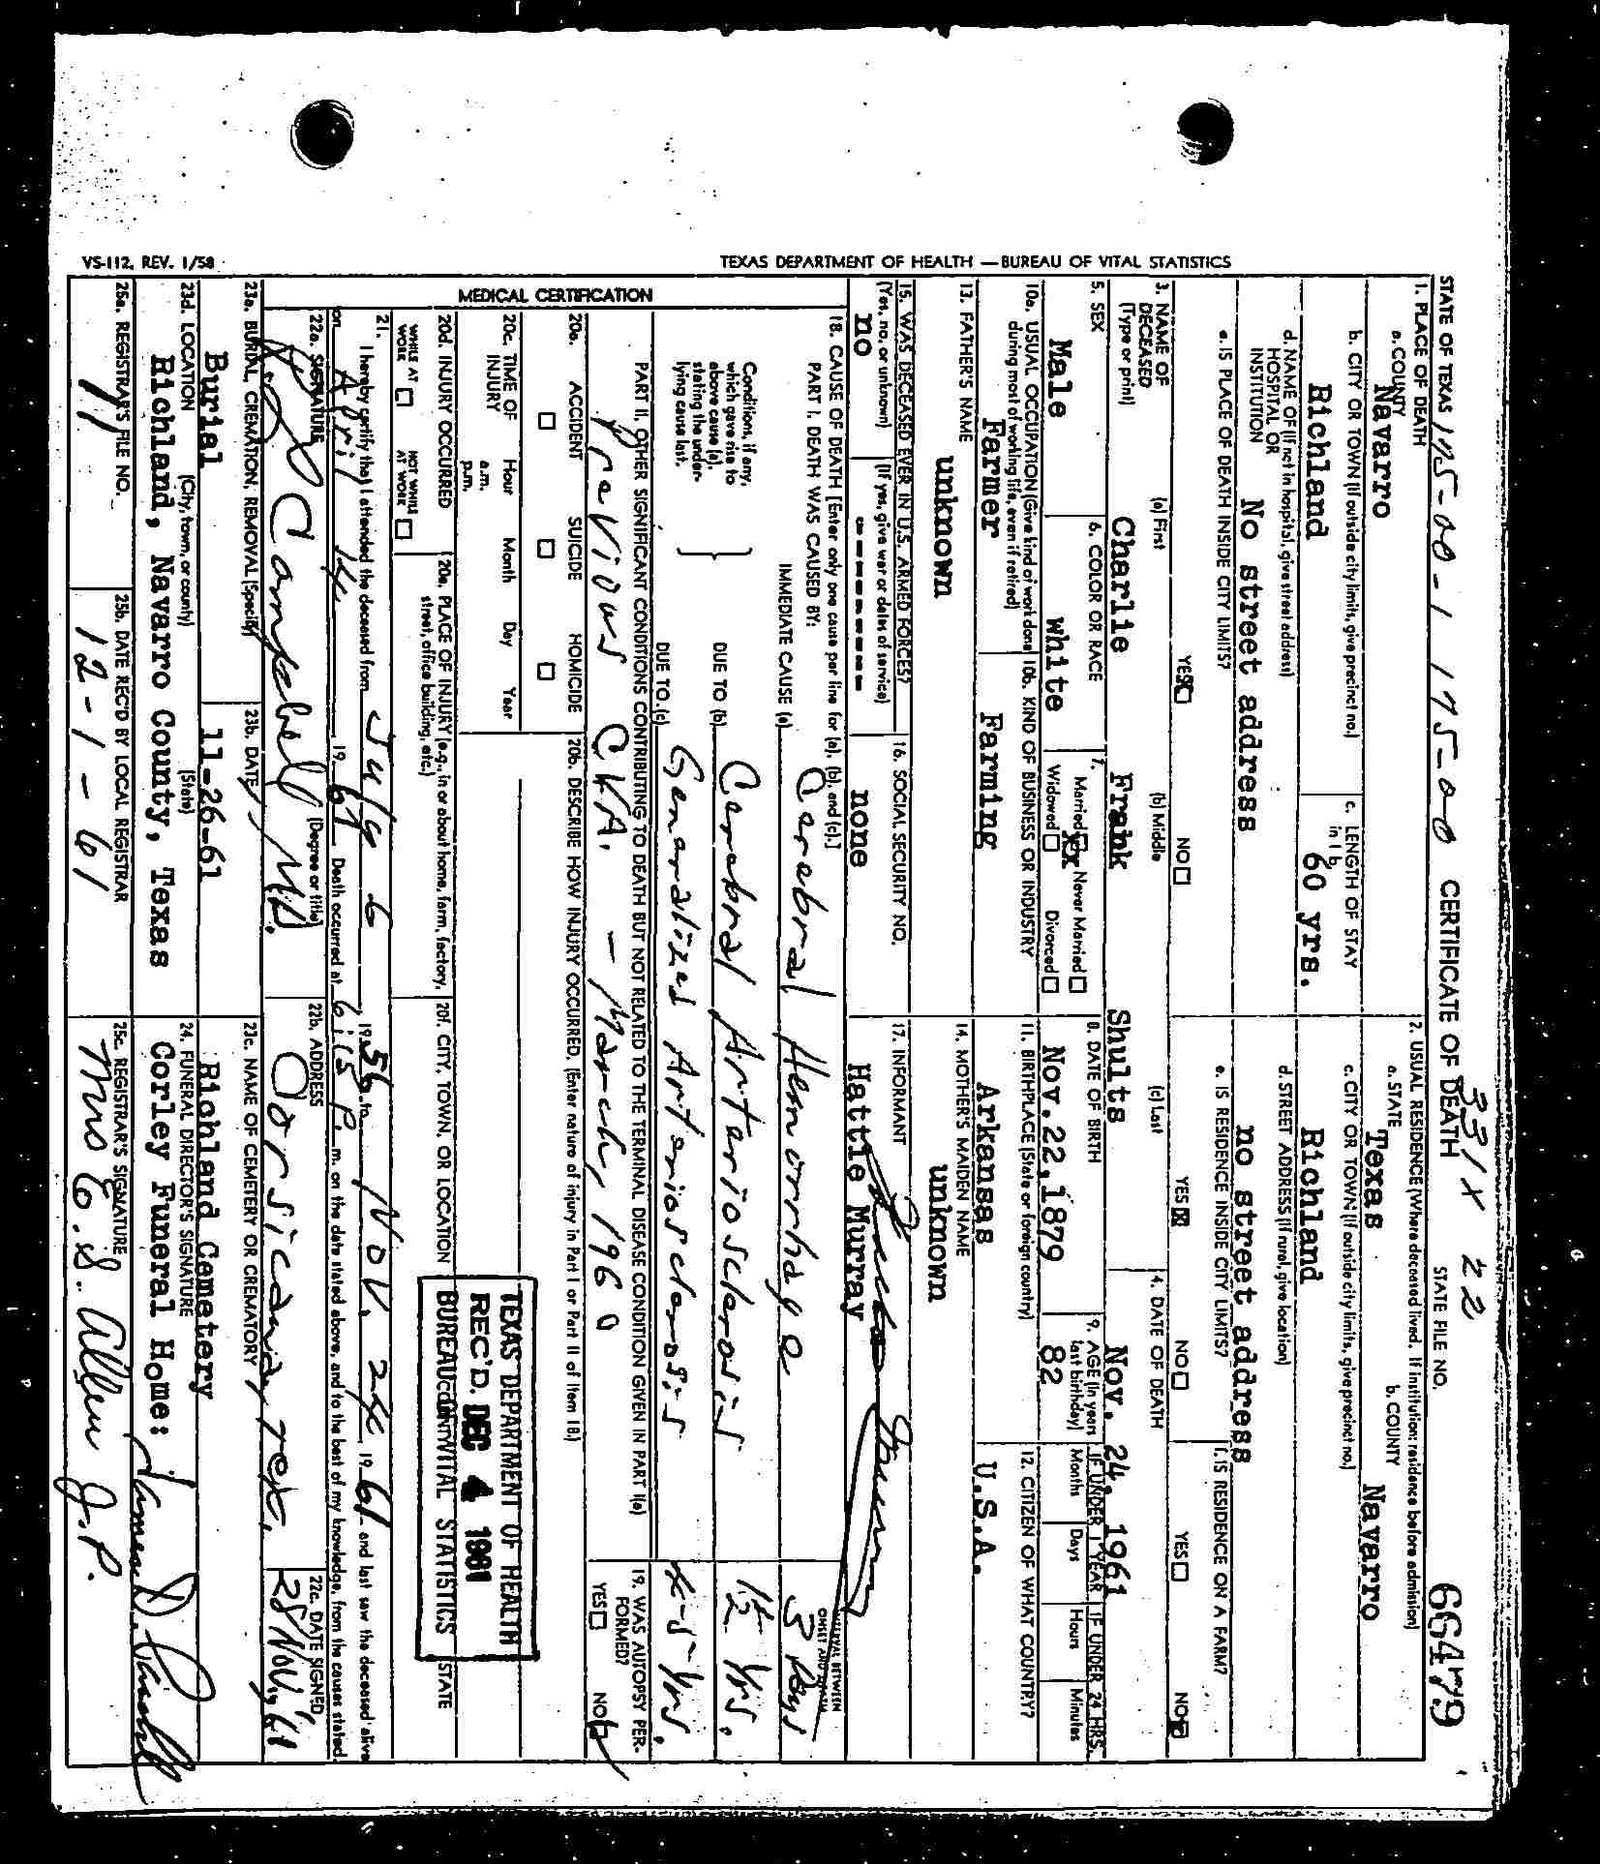 STATE OF TEXAS 175-00-1 175-00 CERTIFICATE OF DEATH 331X 22 STATE FILE NO. 66479
1. PLACE OF DEATH
a. COUNTY
Navarro
2. USUAL RESIDENCE (Where deceased lived. If institution: residence before admission)
a. STATE Texas
b. COUNTY Navarro
b. CITY OR TOWN (If outside city limits, give precinct no.)
Richland
c. LENGTH OF STAY in 1 b.
60 yrs.
c. CITY OR TOWN (If outside city limits, give precinct no.)
Richland
d. NAME OF (If not in hospital, give street address)
HOSPITAL OR
INSTITUTION
No street address
d. STREET ADDRESS (If rural, give location)
no street address
e. IS PLACE OF DEATH INSIDE CITY LIMITS?
YES NO
e. IS RESIDENCE INSIDE CITY LIMITS?
YES X NO
f. IS RESIDENCE ON A FARM?
YES NO
3. NAME OF
DECEASED
(Type or print)
(a) First
Charlie
(b) Middle
Frank
(c) Last
Shults
4. DATE OF DEATH
Nov. 24, 1961
5. SEX
Male
6. COLOR OR RACE
White
7.
Married Never Married
Widowed Divorced
8. DATE OF BIRTH
Nov.22,1879
9. AGE (In years
last birthday)
82
IF UNDER 1 YEAR
Months Days
IF UNDER 24 HRS.
Hours Minutes
10a. USUAL OCCUPATION (Give kind of work done
during most of working life, even if retired)
Farmer
10b. KIND OF BUSINESS OR INDUSTRY
Farming
11. BIRTHPLACE (State or foreign country)
Arkansas
12. CITIZEN OF WHAT COUNTRY?
U.S.A.
13. FATHER'S NAME
unknown
14. MOTHER'S MAIDEN NAME
unknown
15. WAS DECEASED EVER IN U.S. ARMED FORCES?
(Yes, no, or unknown) (If yes, give war or dates of service)
no ---------
16. SOCIAL SECURITY NO.
none
17. INFORMANT
Hattie Murray
18. CAUSE OF DEATH [Enter only one cause per line for (a), (b), and (c).]
PART I. DEATH WAS CAUSED BY:
INTERVAL BETWEEN
ONSET AND DEATH
IMMEDIATE CAUSE (a) Cerebral Hemorrhage 3 Days
Conditions, if any,
which gave rise to
above cause (a),
stating the under-
lying cause last.
DUE TO (b) Cerebral Arteriosclerosis Yrs.
DUE TO (c) Generalized Arteriosclerosis 4-5 Yrs.
PART II. OTHER SIGNIFICANT CONDITIONS CONTRIBUTING TO DEATH BUT NOT RELATED TO THE TERMINAL DISEASE CONDITION GIVEN IN PART I(a)
Previous CVA. - March, 1960
19. WAS AUTOPSY PER-
FORMED?
YES NO
20a. ACCIDENT SUICIDE HOMICIDE
20b. DESCRIBE HOW INJURY OCCURRED. (Enter nature of injury in Part I or Part II of Item 18.)
20c. TIME OF
INJURY
Hour Month Day Year
a.m.
p.m.
20d. INJURY OCCURRED
WHILE AT
WORK
NOT WHILE
AT WORK
20e. PLACE OF INJURY (e.g., in or about home, farm, factory,
street, office building, etc.)
20f. CITY, TOWN, OR LOCATION COUNTY STATE
TEXAS DEPARTMENT OF HEALTH
REC'D. DEC 4 1961
BUREAU OF VITAL STATISTICS
21. I hereby certify that I attended the deceased from July 6, 1956 to Nov. 24, 1961 and last saw the deceased alive
on April 14 1961 Death occurred at 6:15 P. m. on the date stated above, and to the best of my knowledge, from the causes stated.
22a. SIGNATURE (Degree or title)
Campbell, MD.
22b. ADDRESS
Corsicana, Tex.
22c. DATE SIGNED
28 Nov, 61
23a. BURIAL, CREMATION, REMOVAL (Specify)
Burial
23b. DATE
11-26-61
23c. NAME OF CEMETERY OR CREMATORY
Richland Cemetery
23d. LOCATION (City, town, or county) (State)
Richland, Navarro County, Texas
24. FUNERAL DIRECTOR'S SIGNATURE
Corley Funeral Home:
25a. REGISTRAR'S FILE NO.
11
25b. DATE REC'D BY LOCAL REGISTRAR
12-1-61
25c. REGISTRAR'S SIGNATURE
Mrs E.S. Allen J.P.
MEDICAL CERTIFICATION
TEXAS DEPARTMENT OF HEALTH — BUREAU OF VITAL STATISTICS
VS-112, REV. 1/58